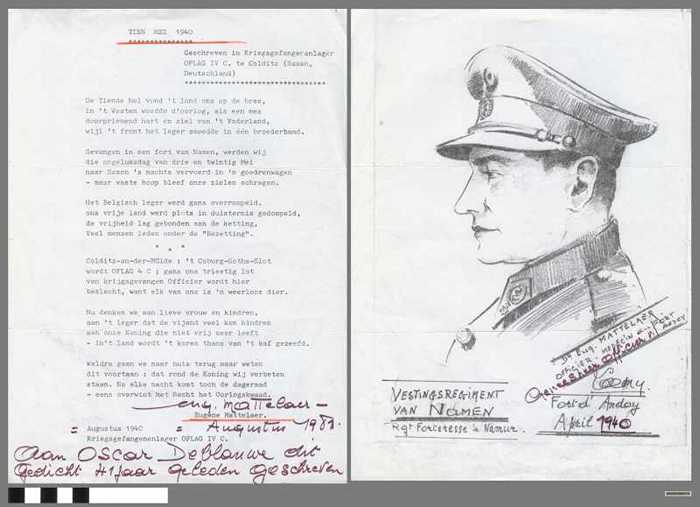 TIEN MEI 1940
Geschreven in Kriegsgefangeranlager
OFLAG IV C. te Colditz (Saxen,
Deutschland)
De Tiende Mei vond 't land ons op de bres,
in 't Westen woedde d'oorlog, als een mes
doorpriemend hart en ziel van 't Vaderland,
wijl 't front het leger smeedde in één broederband.
Gevangen in een fort van Namen, werden wij
die ongeluksdag van drie en twintig Mei
naar Saxen 's nachts vervoerd in 'n goedrenwagen
- maar vaste hoop bleef onze zielen schragen.
Het Belgisch leger werd gans overrompeld,
ons vrije land werd plots in duisternis gedompeld,
de vrijheid lag gebonden aan de ketting,
Veel mensen leden onder de "Bezetting".
* * *
Colditz-an-der-Mülde : 't Coburg-Gotha-Slot
wordt OFLAG 4 C ; gans ons trieztig lot
van krijgsgevangen Officier wordt hier
beslecht, want elk van ons is 'n weerloze dier.
Nu denken we aan lieve vrouw en kindren,
aan 't leger dat de vijand veel kon hindren
aan onze Koning die niet vrij meer leeft
- in't land wordt 't koren thans van 't kaf gezeefd.
Weldra gaan we naar huis terug maar weten
dit voortaan : dat rond de Koning wij verbeten
staan. Na elke nacht komt toch de dageraad
- eens overwint het Recht het Oorlogskwaad.
Eug. Mattelaer -
Eugène Mattelaer.
= Augustus 1940 = Augustus 1981.
Kriegsgefangenenlager OFLAG IV C.
Aan Oscar Deblauwe dit
gedicht 41 jaar geleden geschreven
Dr Eug. MATTELAER
OFFICIER MEDECIN du FORT
ANDOY
Geneesheer Officier
VESTINGSREGIMENT
VAN NAMEN
Rgt Forteresse à Namur.
Fort d' Andoy
April 1940